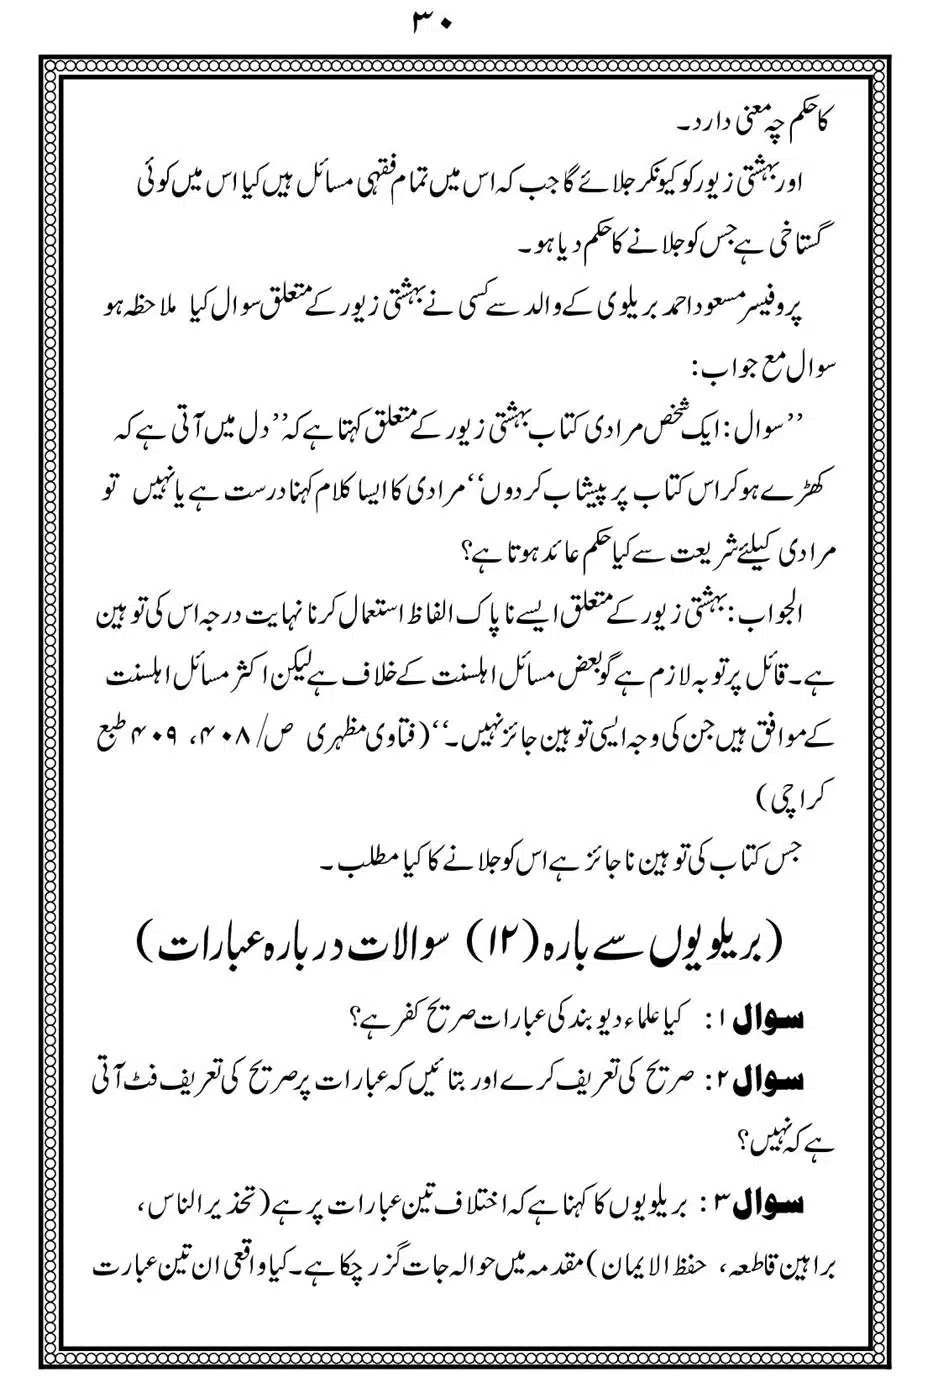 ۳۰
کا حکم چہ معنی دارد۔
اور بہشتی زیور کو کیونکر جلائے گا جب کہ اس میں تمام فقہی مسائل ہیں کیا اس میں کوئی
گستاخی ہے جس کو جلانے کا حکم دیا ہو۔
پروفیسر مسعود احمد بریلوی کے والد سے کسی نے بہشتی زیور کے متعلق سوال کیا ملاحظہ ہو
سوال مع جواب:
’’سوال: ایک شخص مرادی کتاب بہشتی زیور کے متعلق کہتا ہے کہ’’دل میں آتی ہے کہ
کھڑے ہو کر اس کتاب پر پیشاب کر دوں‘‘ مرادی کا ایسا کلام کہنا درست ہے یا نہیں تو
مرادی کیلئے شریعت سے کیا حکم عائد ہوتا ہے؟
الجواب: بہشتی زیور کے متعلق ایسے نا پاک الفاظ استعمال کرنا نہایت درجہ اس کی توہین
ہے۔ قائل پر توبہ لازم ہے گو بعض مسائل اہلسنت کے خلاف ہے لیکن اکثر مسائل اہلسنت
کے موافق ہیں جن کی وجہ ایسی توہین جائز نہیں۔‘‘ (فتاوی مظہری ص/۴۰۸، ۴۰۹ طبع
کراچی)
جس کتاب کی توہین نا جائز ہے اس کو جلانے کا کیا مطلب۔
(بریلویوں سے بارہ (۱۲) سوالات در بارہ عبارات)
سوال ۱: کیا علماء دیوبند کی عبارات صریح کفر ہے؟
سوال ۲: صریح کی تعریف کرے اور بتائیں کہ عبارات پر صریح کی تعریف فٹ آتی
ہے کہ نہیں؟
سوال ۳: بریلویوں کا کہنا ہے کہ اختلاف تین عبارات پر ہے (تحذیر الناس،
براہین قاطعہ، حفظ الایمان) مقدمہ میں حوالہ جات گزر چکا ہے۔ کیا واقعی ان تین عبارت